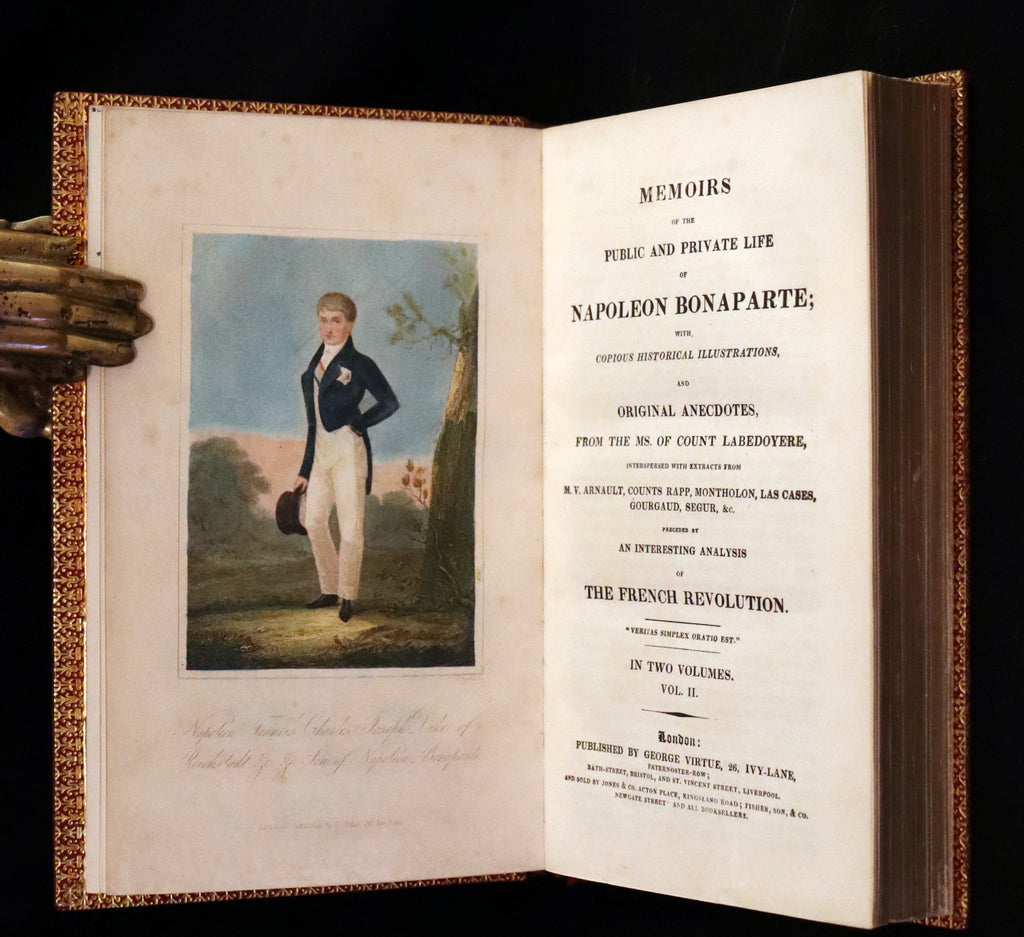 Napoleon Francis Charles Joseph Duke of
Reichstadt &c &c Son of Napoleon Bonaparte
MEMOIRS
OF THE
PUBLIC AND PRIVATE LIFE
OF
NAPOLEON BONAPARTE;
WITH,
COPIOUS HISTORICAL ILLUSTRATIONS,
AND
ORIGINAL ANECDOTES,
FROM THE MS. OF COUNT LABEDOYERE,
INTERSPERSED WITH EXTRACTS FROM
M. V. ARNAULT, COUNTS RAPP, MONTHOLON, LAS CASES,
GOURGAUD, SEGUR, &c.
PRECEDED BY
AN INTERESTING ANALYSIS
OF
THE FRENCH REVOLUTION.
"VERITAS SIMPLEX ORATIO EST."
IN TWO VOLUMES.
VOL. II.
London:
PUBLISHED BY GEORGE VIRTUE, 26, IVY-LANE,
PATERNOSTER-ROW;
BATH-STREET, BRISTOL, AND ST. VINCENT STREET, LIVERPOOL.
AND SOLD BY JONES & CO. ACTON PLACE, KINGSLAND ROAD; FISHER, SON, & CO.
NEWGATE STREET AND ALL BOOKSELLERS.